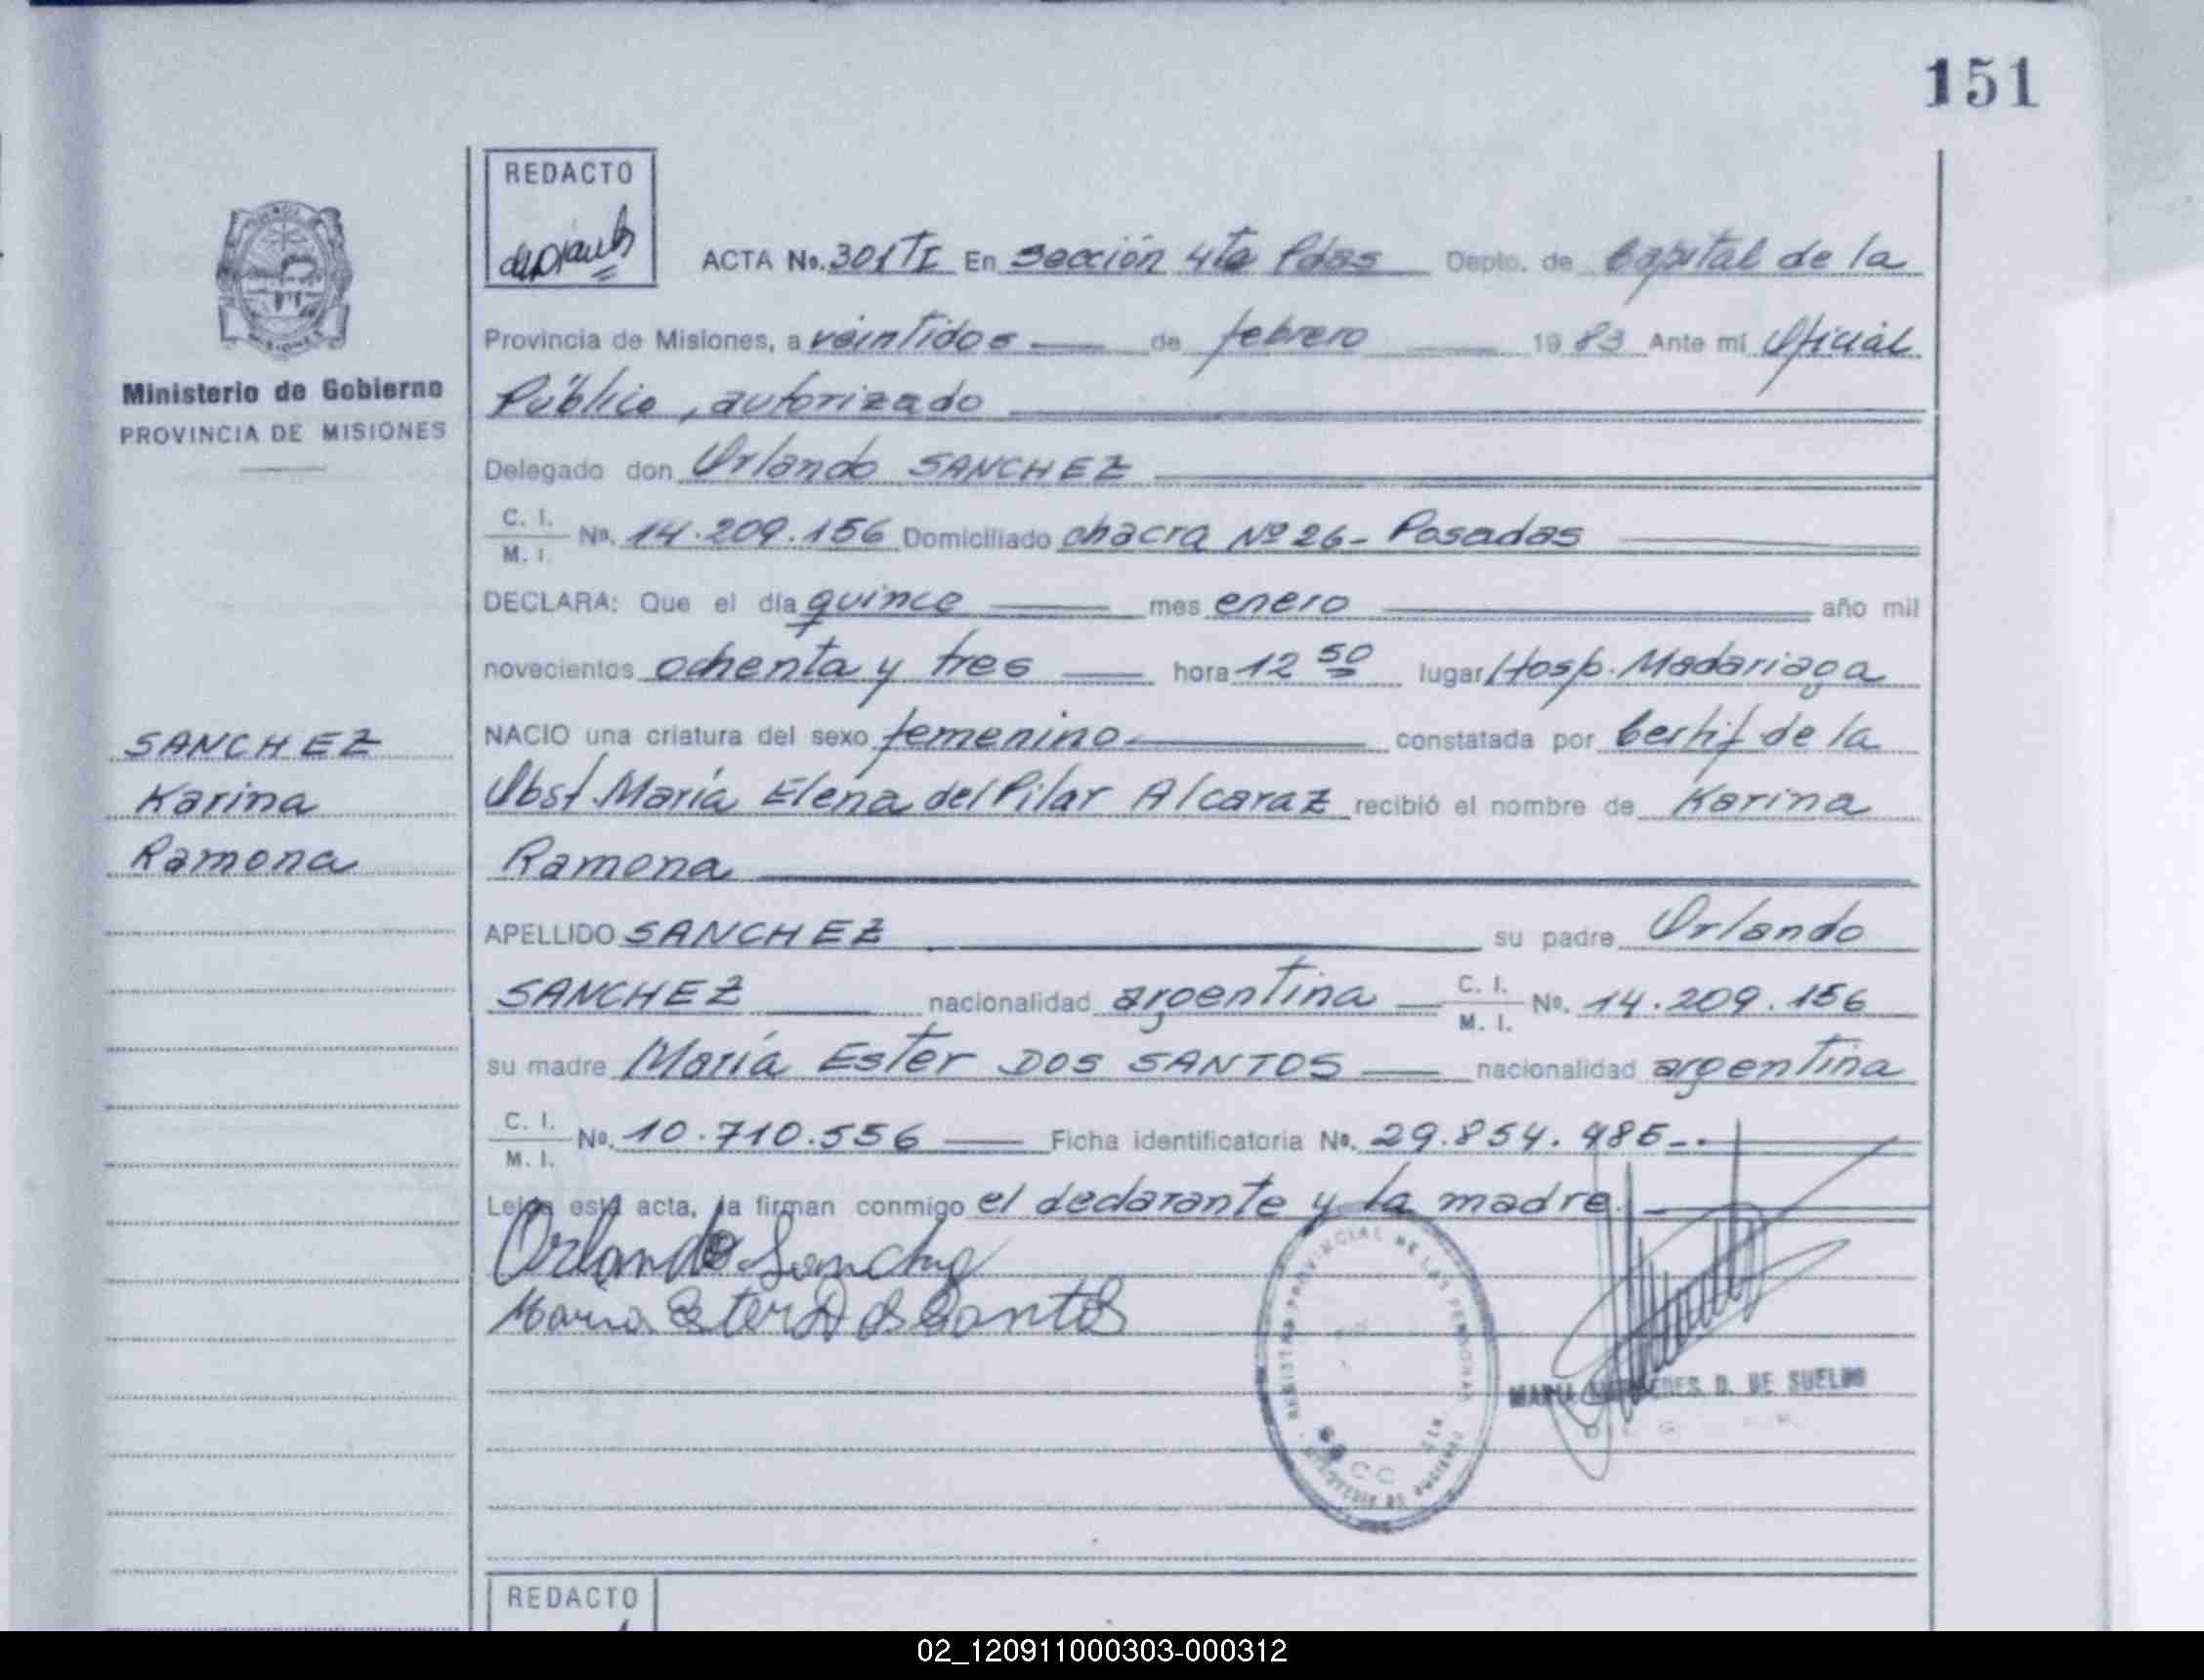 151
REDACTO
ACTA No. 301TI En Sección 4ta Pdas Depto. de Capital de la
Provincia de Misiones, a veintidos de febrero 1983 Ante mí Oficial
Público, autorizado
Delegado don Orlando SANCHEZ
C. I. M. I. No. 14.209.156 Domiciliado chacra Nº 26 - Posadas
DECLARA: Que el día quince mes enero año mil
novecientos ochenta y tres hora 12 50 lugar Hosp. Madariaga
NACIO una criatura del sexo femenino constatada por Certif de la
Obst. María Elena del Pilar Alcaraz recibió el nombre de Karina
Ramona
APELLIDO SANCHEZ su padre Orlando
SANCHEZ nacionalidad argentina C. I. M. I. No. 14.209.156
su madre María Ester DOS SANTOS nacionalidad argentina
C. I. M. I. No. 10.710.556 Ficha identificatoria No. 29.854.485-.
Leída esta acta, la firman conmigo el declarante y la madre.
Orlando Sanchez
Maria Ester D dos Santos
MARIA MERCEDES D. DE SUELDO
REGISTRO PROVINCIAL DE LAS PERSONAS
MINISTERIO DE GOBIERNO
MISIONES
Ministerio de Gobierno
PROVINCIA DE MISIONES
SANCHEZ
Karina
Ramona
REDACTO
02_120911000303-000312